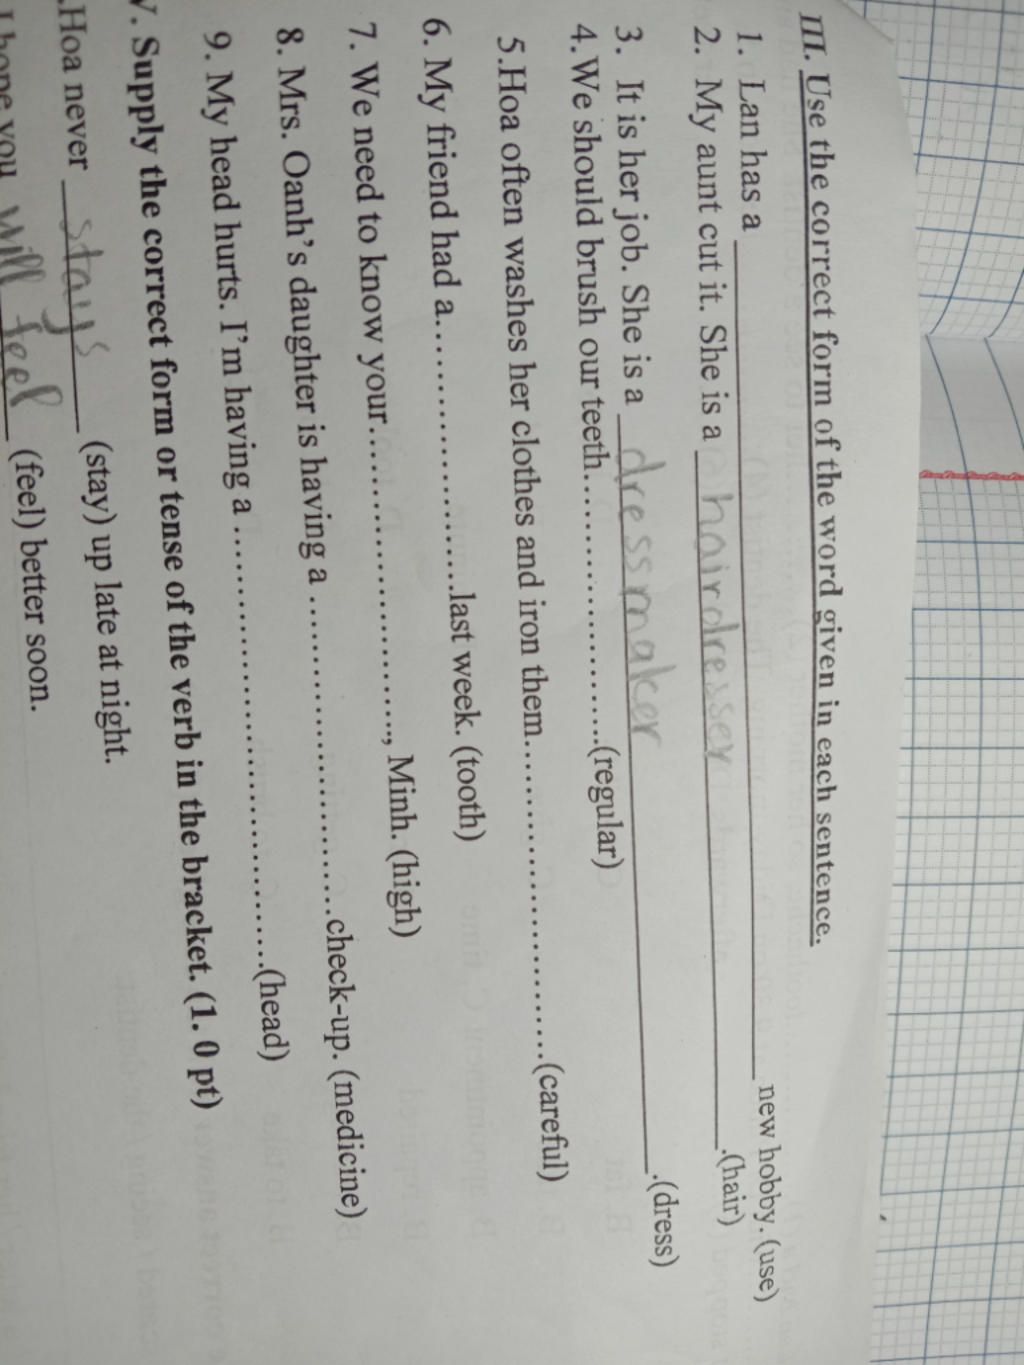 III. Use the correct form of the word given in each sentence.
1. Lan has a ______ new hobby. (use)
2. My aunt cut it. She is a hairdresser .(hair)
3. It is her job. She is a dressmaker .(dress)
4. We should brush our teeth..................(regular)
5.Hoa often washes her clothes and iron them..................(careful)
6. My friend had a..................last week. (tooth)
7. We need to know your.................., Minh. (high)
8. Mrs. Oanh's daughter is having a ..................check-up. (medicine)
9. My head hurts. I'm having a ..................(head)
V. Supply the correct form or tense of the verb in the bracket. (1. 0 pt)
.Hoa never stays (stay) up late at night.
I hope you will feel (feel) better soon.